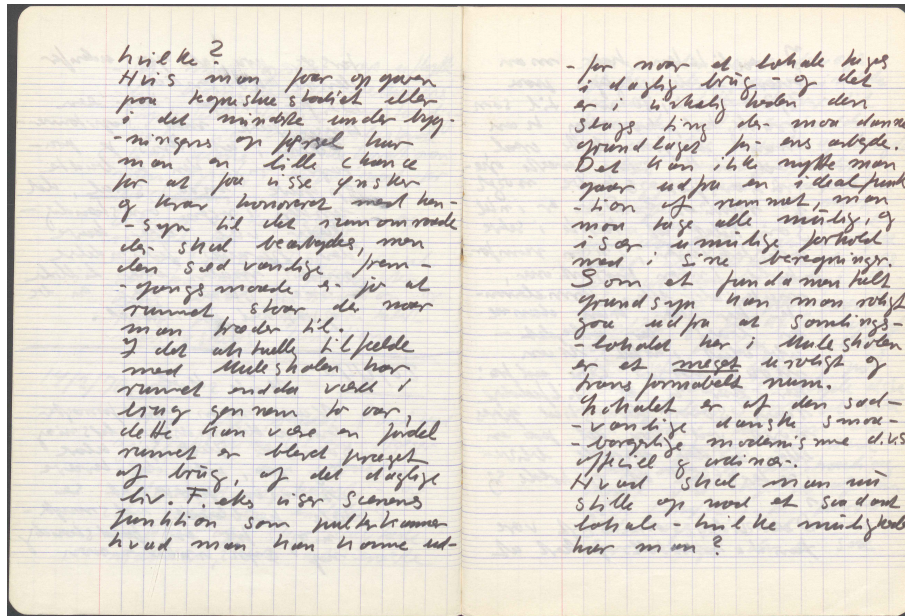 hvilke?
Hvis man faar opgaven
paa tegnestue stadiet eller
i det mindste under byg-
-ningens opførsel har
man en lille chance
for at faa visse ønsker
og krav honoreret med hen-
-syn til det rumomraade
der skal bearbejdes, men
den sædvanlige frem-
-gangsmaade er jo at
rummet staar der naar
man træder til.
I det aktuelle tilfælde
med Uuleskolen har
rummet endda været i
brug gennem to aar,
dette kan være en fördel
rummet er blevet præget
af brug, af det daglige
liv. F. eks viser Scenens
funktion som pulterkammer
hvad man kan komme ud-
- for naar et lokale tages
i daglig brug - og det
er i virkeligheden den
slags ting der maa danne
grundlaget for ens arbejde.
Det kan ikke nytte man
gaar ud fra en idealfunk-
-tion af rummet, man
maa tage alle mulig, og
især umulige forhold
med i sine beregninger.
Som et fundamentalt
grundsyn kan man roligt
gaa ud fra at Samlings-
-lokalet her i Uuleskolen
er et meget uroligt og
transformabelt rum.
Lokalet er af den sæd-
-vanlige danske smaa-
-borgerlige modernisme d.v.s
officiel og ordinær.
Hvad skal man nu
stille op med et saadant
lokale - hvilke muligheder
har man?